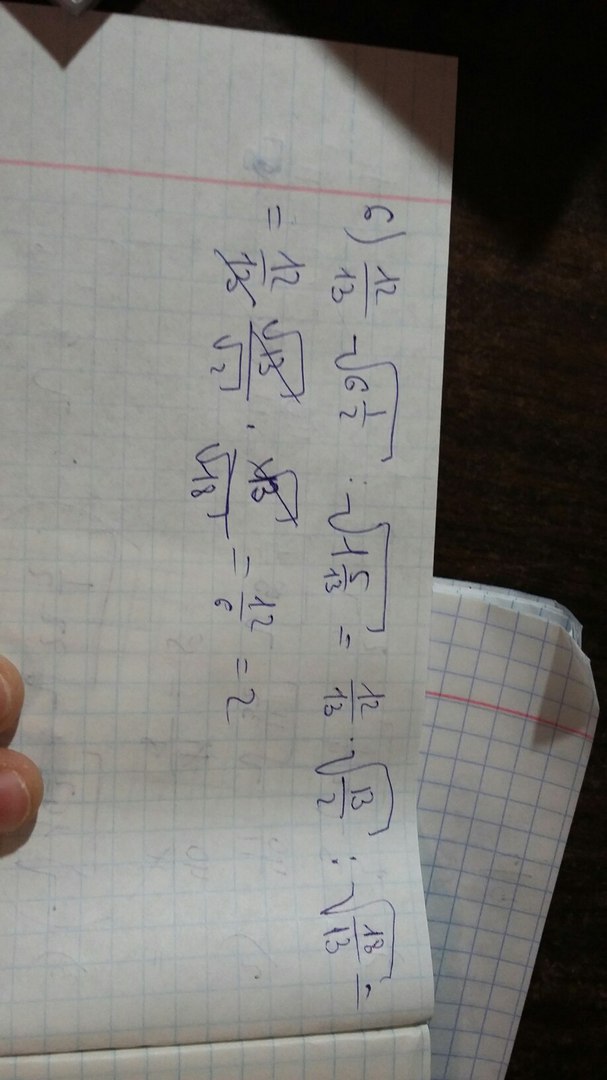 б) 12/13 √(6 1/2) : √(1 5/13) = 12/13 · √(13/2) : √(18/13) =
= 12/13 · √13/√2 · √13/√18 = 12/6 = 2